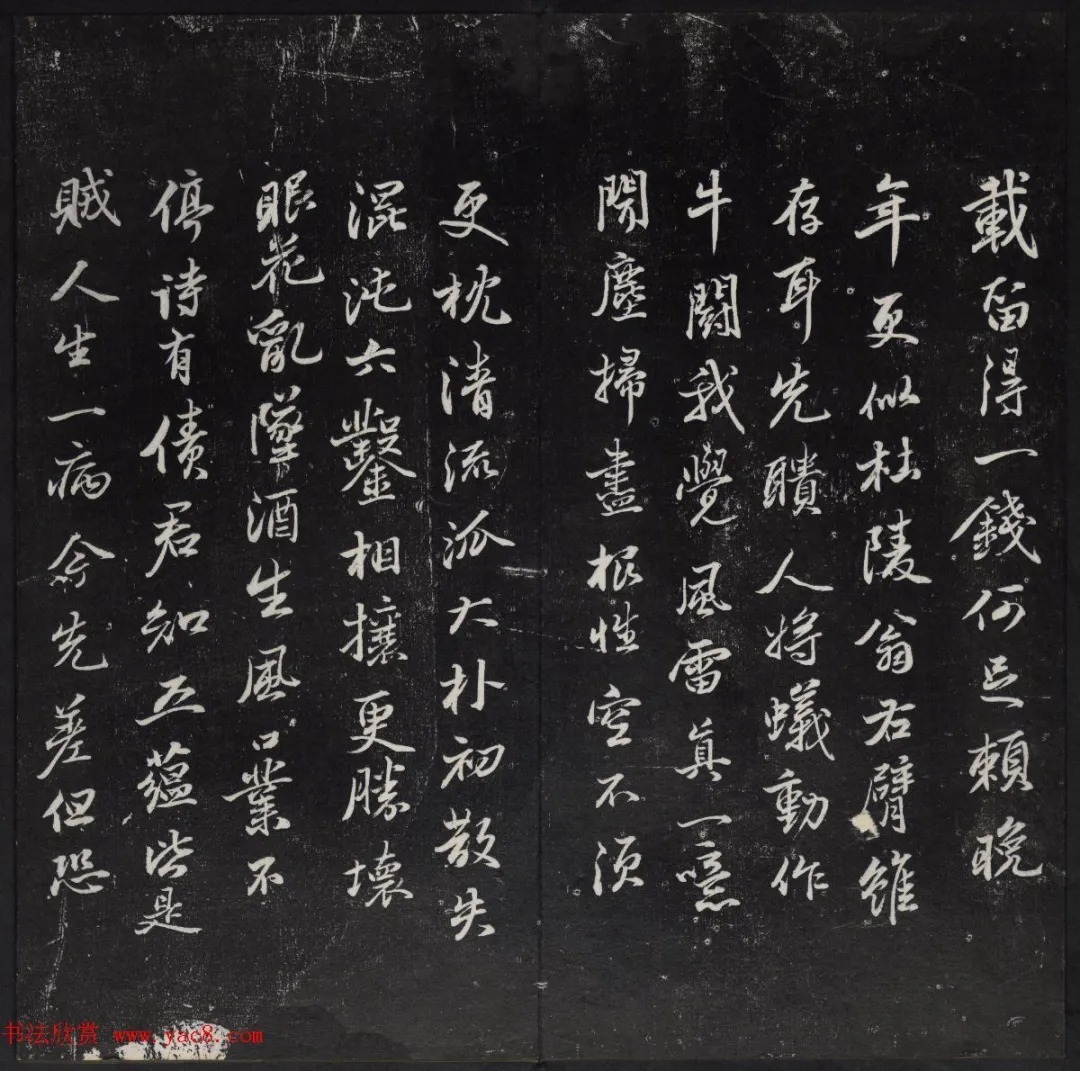 載留得一錢何足賴晚
年更似杜陵翁右臂雖
存耳先聵人將蟻動作
牛鬭我覺風雷真一噫
聞塵掃盡根性空不須
更枕清流派大朴初散失
混沌六鑿相攘更勝壞
眼花亂墜酒生風口業不
停詩有債君知五蘊皆是
賊人生一病今先差但恐
书法欣赏 www.yac8.com